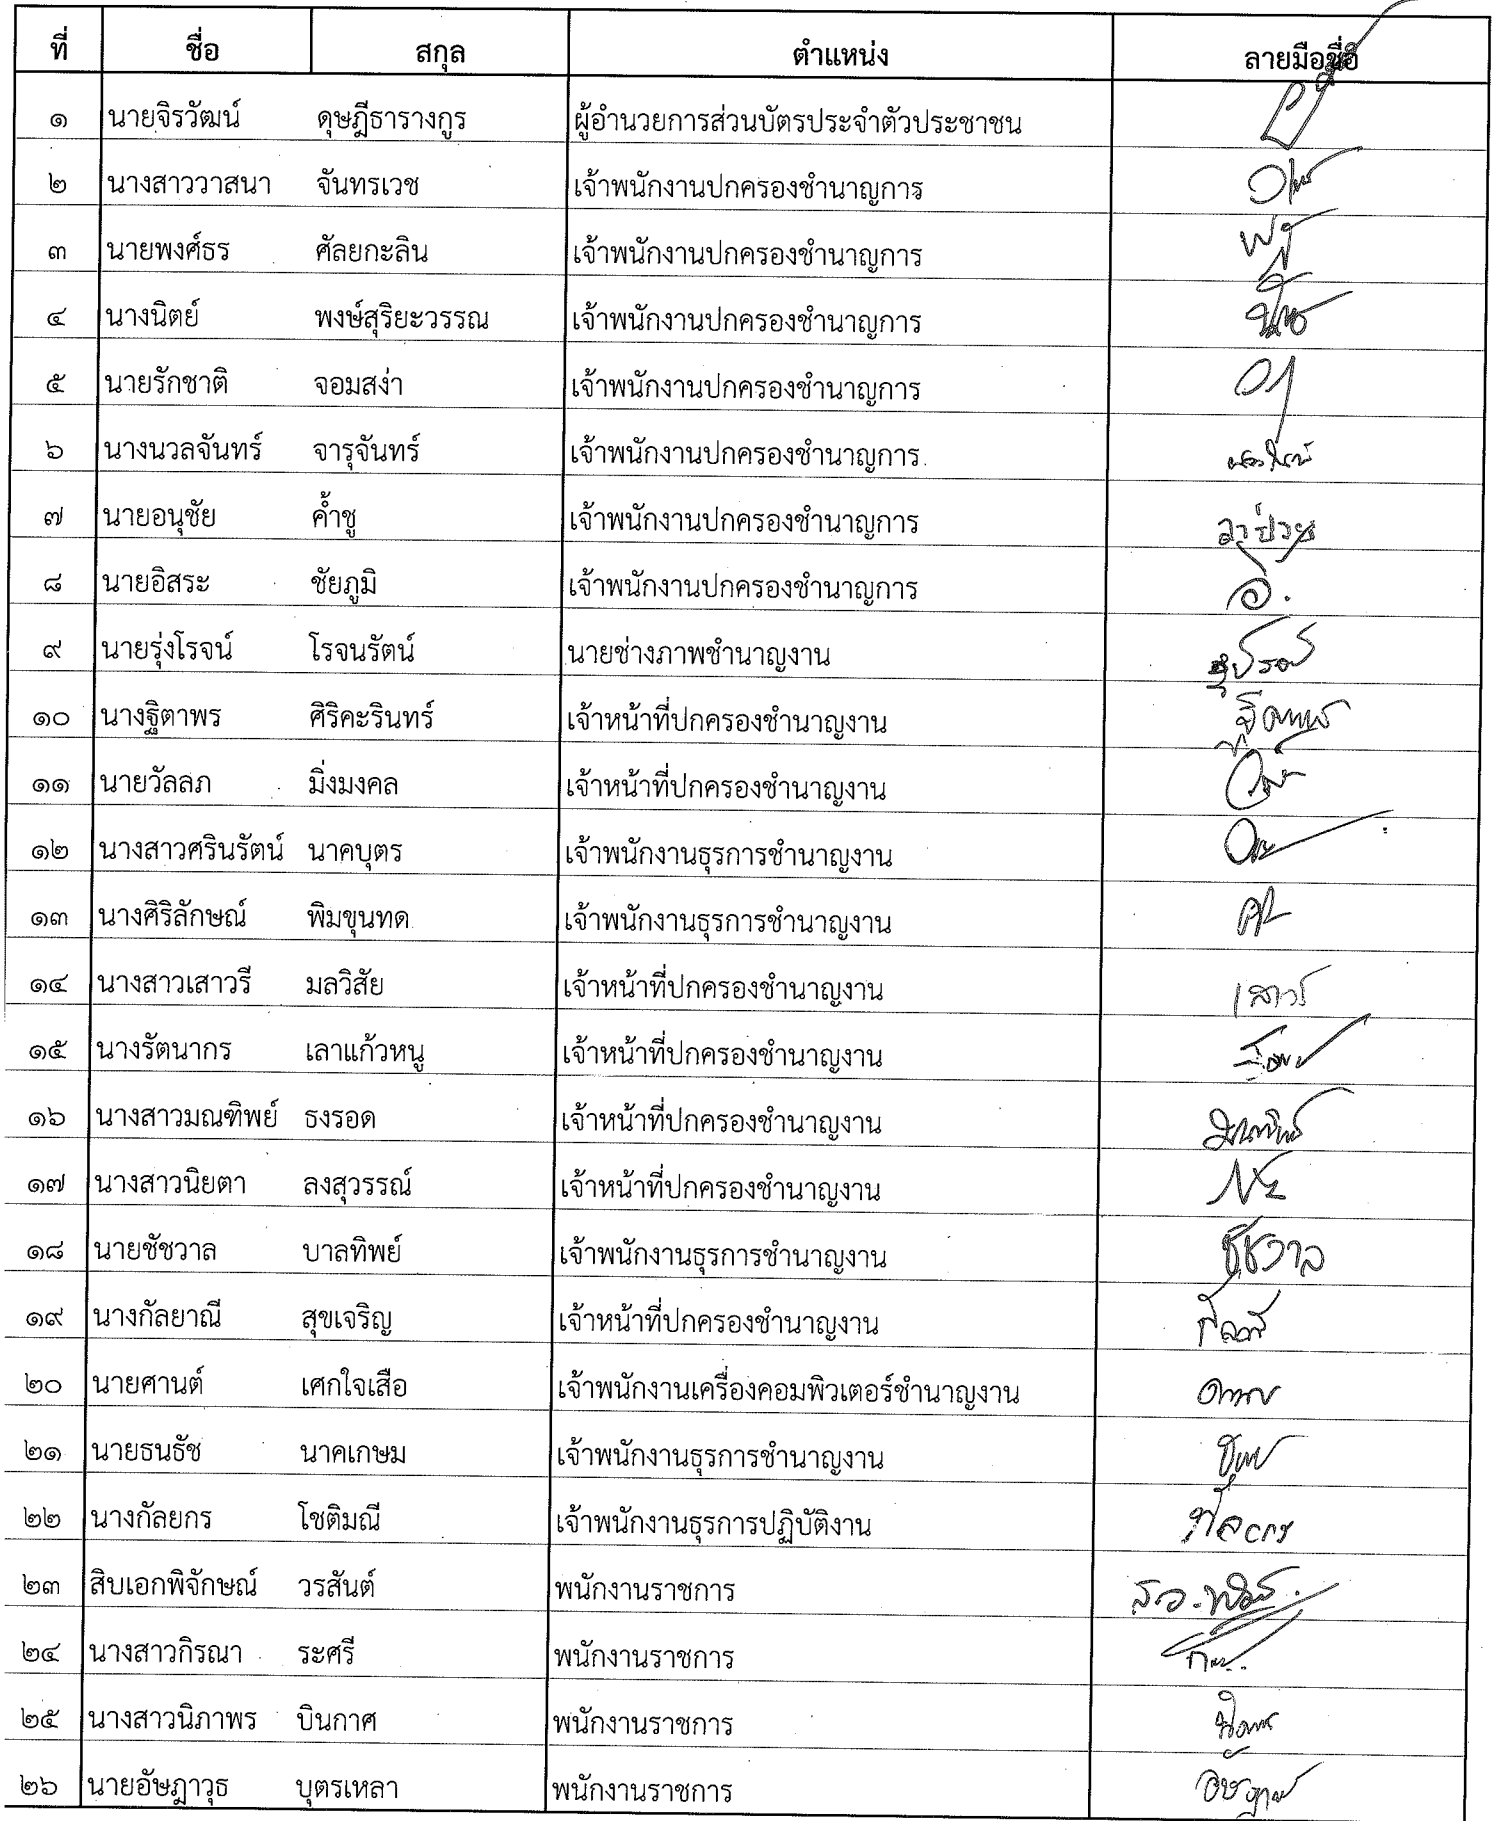 ที่ ชื่อ สกุล ตำแหน่ง ลายมือชื่อ
๑ นายจิรวัฒน์ ดุษฎีธารางกูร ผู้อำนวยการส่วนบัตรประจำตัวประชาชน
๒ นางสาววาสนา จันทรเวช เจ้าพนักงานปกครองชำนาญการ
๓ นายพงศ์ธร ศัลยกะลิน เจ้าพนักงานปกครองชำนาญการ
๔ นางนิตย์ พงษ์สุริยะวรรณ เจ้าพนักงานปกครองชำนาญการ
๕ นายรักชาติ จอมสง่า เจ้าพนักงานปกครองชำนาญการ
๖ นางนวลจันทร์ จารุจันทร์ เจ้าพนักงานปกครองชำนาญการ
๗ นายอนุชัย ค้ำชู เจ้าพนักงานปกครองชำนาญการ ลาป่วย
๘ นายอิสระ ชัยภูมิ เจ้าพนักงานปกครองชำนาญการ
๙ นายรุ่งโรจน์ โรจนรัตน์ นายช่างภาพชำนาญงาน
๑๐ นางฐิตาพร ศิริคะรินทร์ เจ้าหน้าที่ปกครองชำนาญงาน
๑๑ นายวัลลภ มิ่งมงคล เจ้าหน้าที่ปกครองชำนาญงาน
๑๒ นางสาวศรินรัตน์ นาคบุตร เจ้าพนักงานธุรการชำนาญงาน
๑๓ นางศิริลักษณ์ พิมขุนทด เจ้าพนักงานธุรการชำนาญงาน
๑๔ นางสาวเสาวรี มลวิสัย เจ้าหน้าที่ปกครองชำนาญงาน เสาวรี
๑๕ นางรัตนากร เลาแก้วหนู เจ้าหน้าที่ปกครองชำนาญงาน
๑๖ นางสาวมณฑิพย์ ธงรอด เจ้าหน้าที่ปกครองชำนาญงาน
๑๗ นางสาวนิยตา ลงสุวรรณ์ เจ้าหน้าที่ปกครองชำนาญงาน
๑๘ นายชัชวาล บาลทิพย์ เจ้าพนักงานธุรการชำนาญงาน ชัชวาล
๑๙ นางกัลยาณี สุขเจริญ เจ้าหน้าที่ปกครองชำนาญงาน
๒๐ นายศานต์ เศกใจเสือ เจ้าพนักงานเครื่องคอมพิวเตอร์ชำนาญงาน
๒๑ นายธนธัช นาคเกษม เจ้าพนักงานธุรการชำนาญงาน
๒๒ นางกัลยกร โชติมณี เจ้าพนักงานธุรการปฏิบัติงาน
๒๓ สิบเอกพิจักษณ์ วรสันต์ พนักงานราชการ
๒๔ นางสาวกิรณา ระศรี พนักงานราชการ
๒๕ นางสาวนิภาพร บินกาศ พนักงานราชการ
๒๖ นายอัษฎาวุธ บุตรเหลา พนักงานราชการ